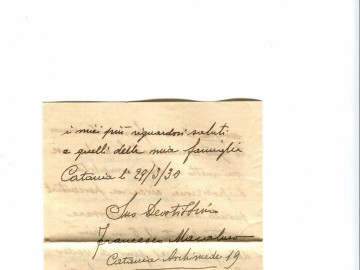 i miei più riguardosi saluti
e quelli della mia famiglia
Catania li 29/3/30
Suo Devotissimo
Francesco
Catania Archimede 19